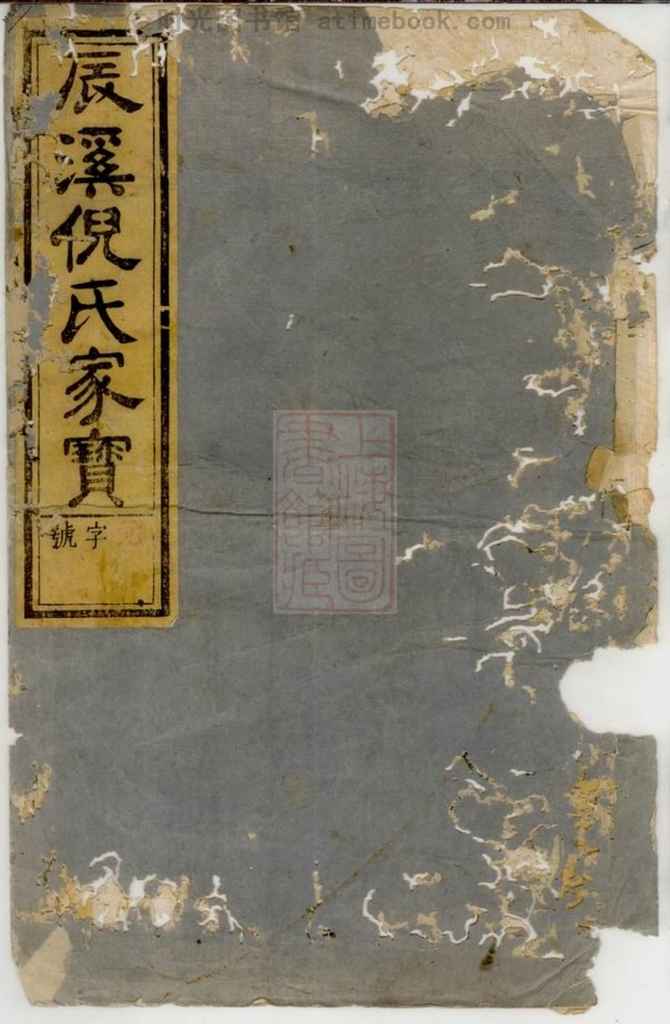 时光图书馆 atimebook.com
辰溪倪氏家寶
字
號
上海圖
書館藏